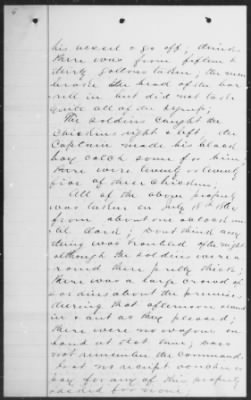 his vessel & go off, think
there was from fifteen to
thirty gallons taken, the men
broke the head of the bar
rell in but did not take
quite all of the syrup;
The soldiers caught the
chickens right & left, the
Captain made his black
boy catch some for him,
there were twenty or twenty
five of these chickens
All of the above property
was taken on July
from about one oclock un
til dark; Dont think any
thing was troubled of the night
although the soldiers were a
round there pretty thick;
there was a large crowd of
soldiers about the premises
during that afternoon
in & out as they pleased;
there were no wagons on
hand at that time; does
not remember the command
Got no receipt voucher or
pay for any of this property
asked for none;